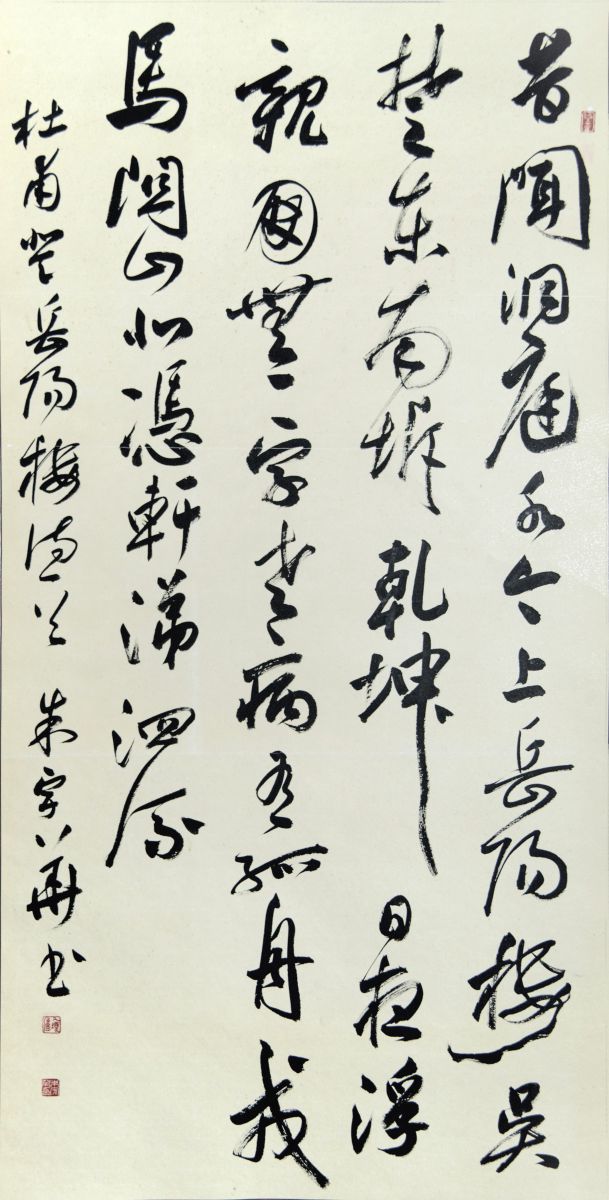 昔聞洞庭水今上岳陽樓吳
楚東南坼乾坤日夜浮
親朋無一字老病有孤舟戎
馬關山北憑軒涕泗流
杜甫登岳陽樓詩一首 朱華書